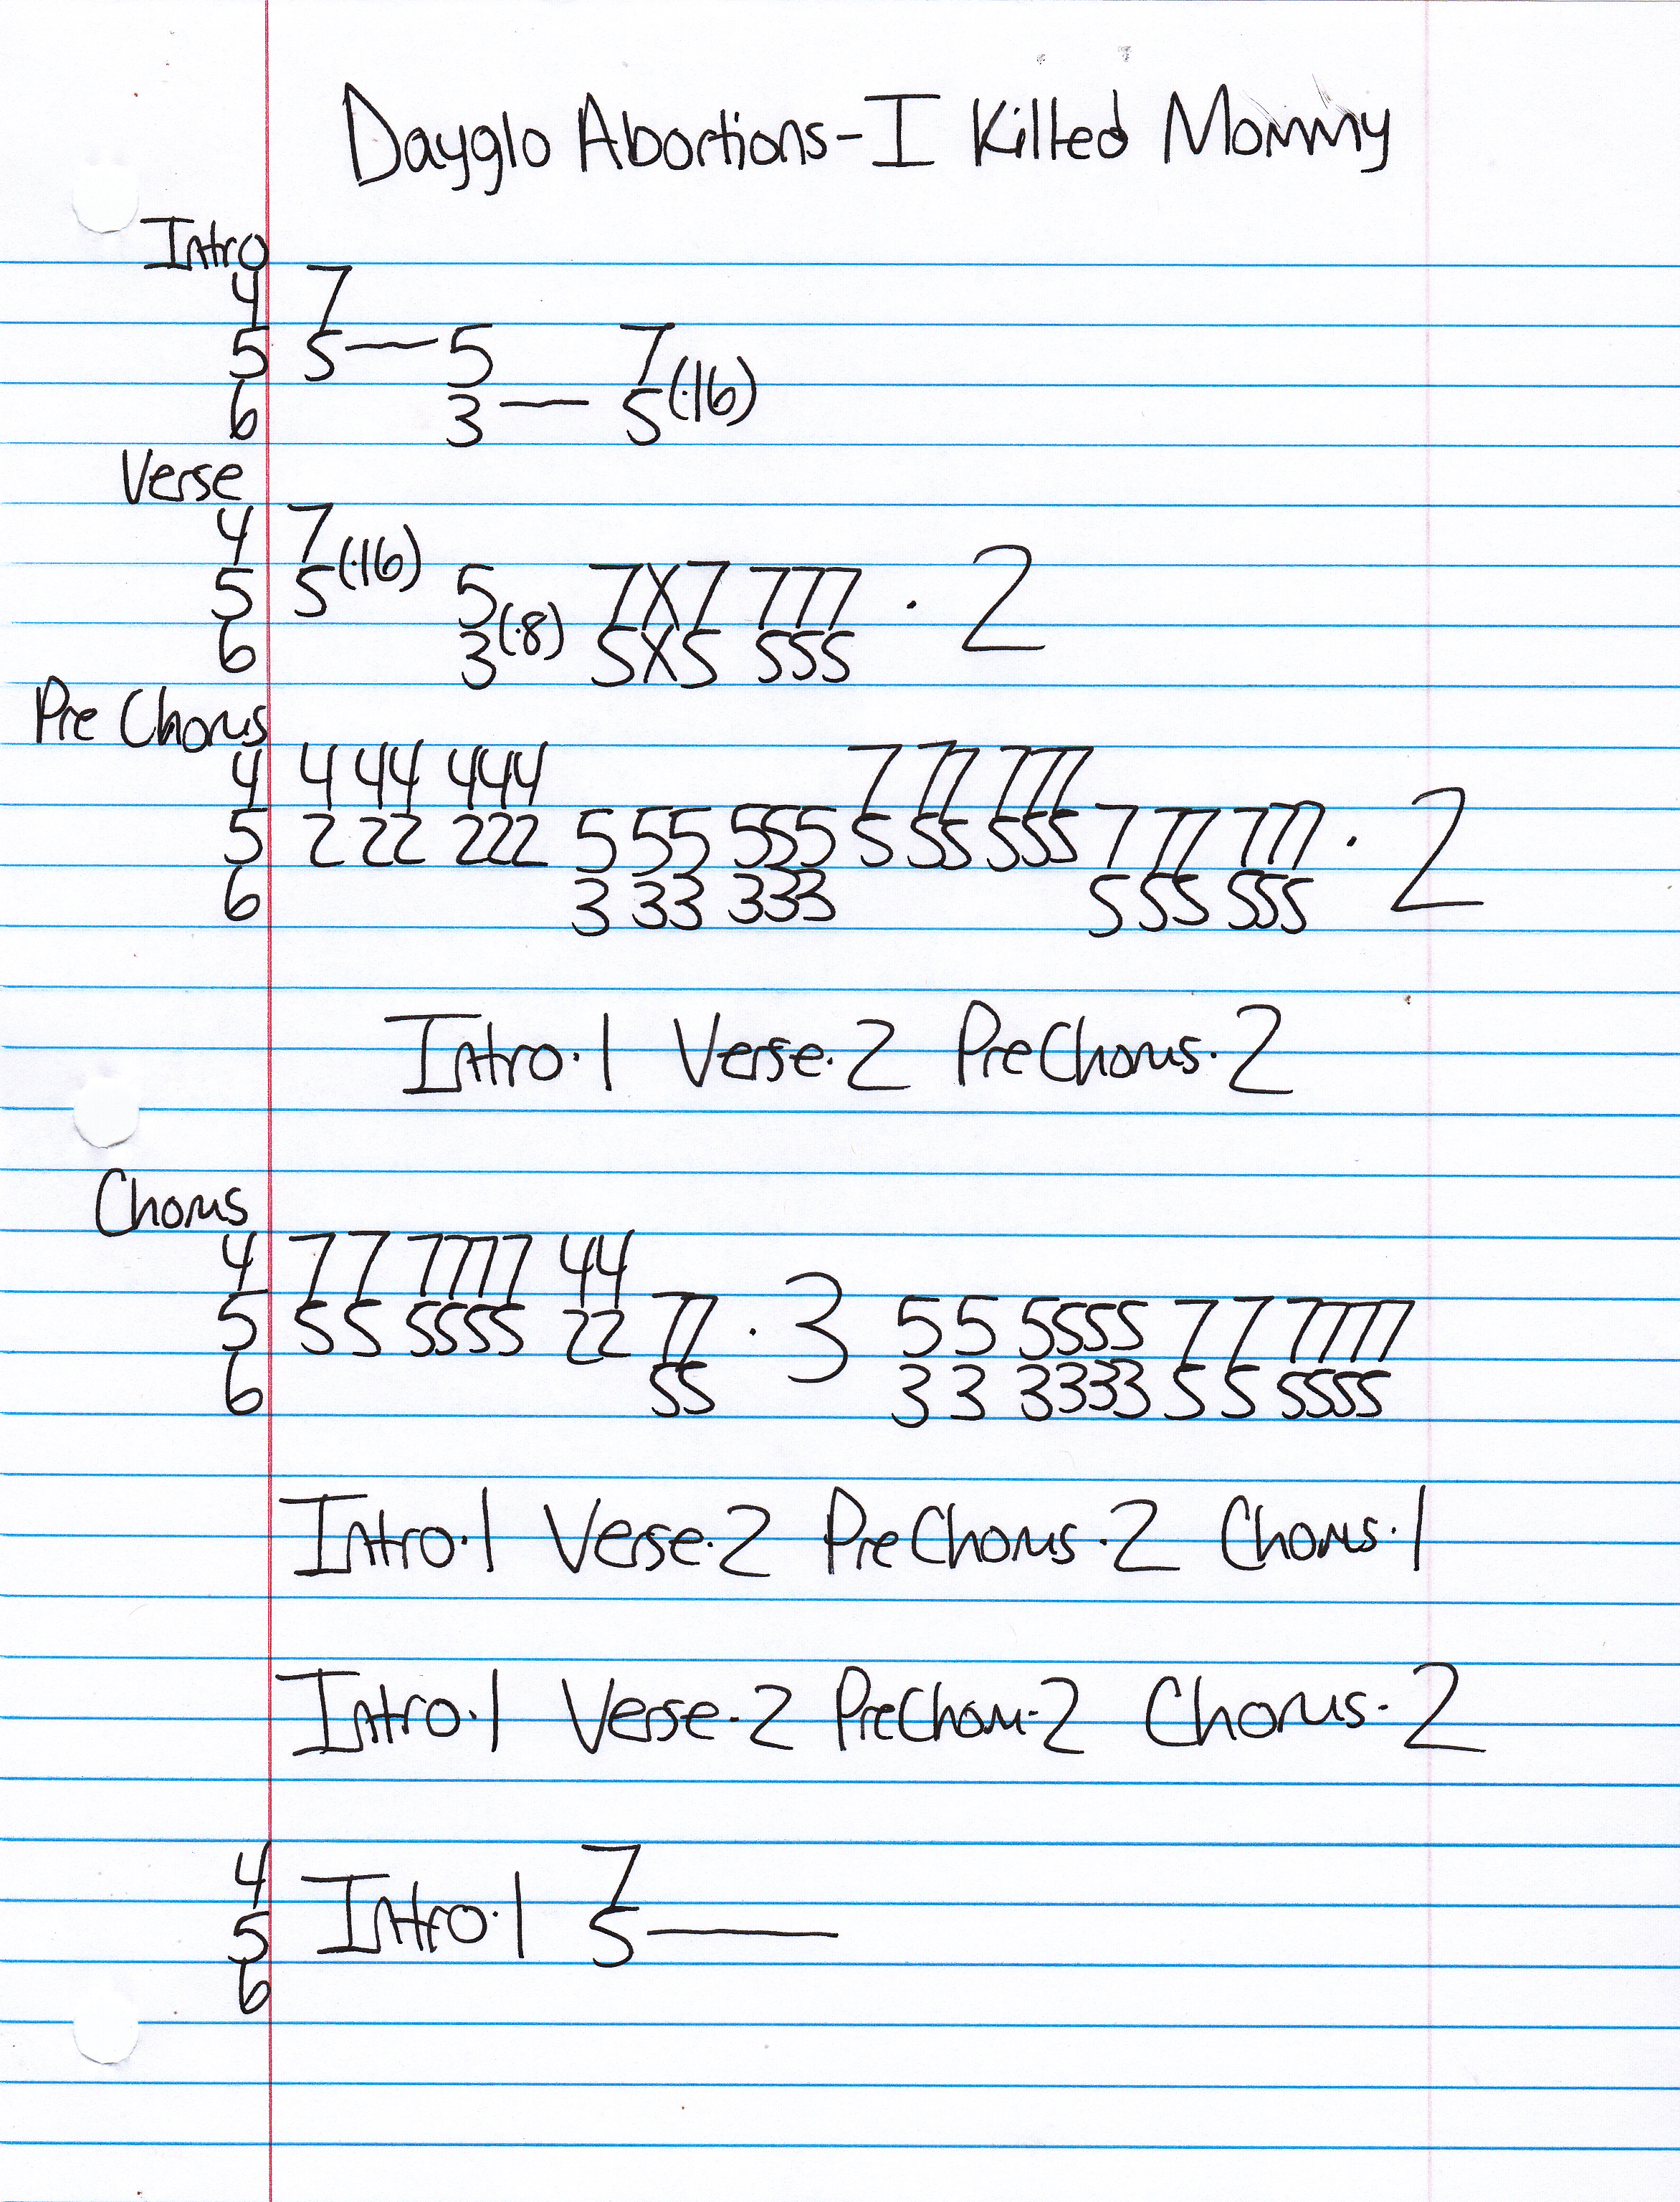 Dayglo Abortions - I Killed Mommy
Intro
4 7
5 5 — 5 7
6 3 — 5 (·16)
Verse
4 7
5 5 (·16) 5 7X7 777 · 2
6 3 (·8) 5X5 555
Pre Chorus
4 4 44 444 7 77 777
5 2 22 222 5 55 555 5 55 555 7 77 777 · 2
6 3 33 333 5 55 555
Intro·1 Verse·2 PreChorus·2
Chorus
4 7 7 7777 44
5 5 5 5555 22 77 · 3 5 5 5555 7 7 7777
6 55 3 3 3333 5 5 5555
Intro·1 Verse·2 PreChorus·2 Chorus·1
Intro·1 Verse·2 PreChorus·2 Chorus·2
4 7
5 Intro·1 5 —
6